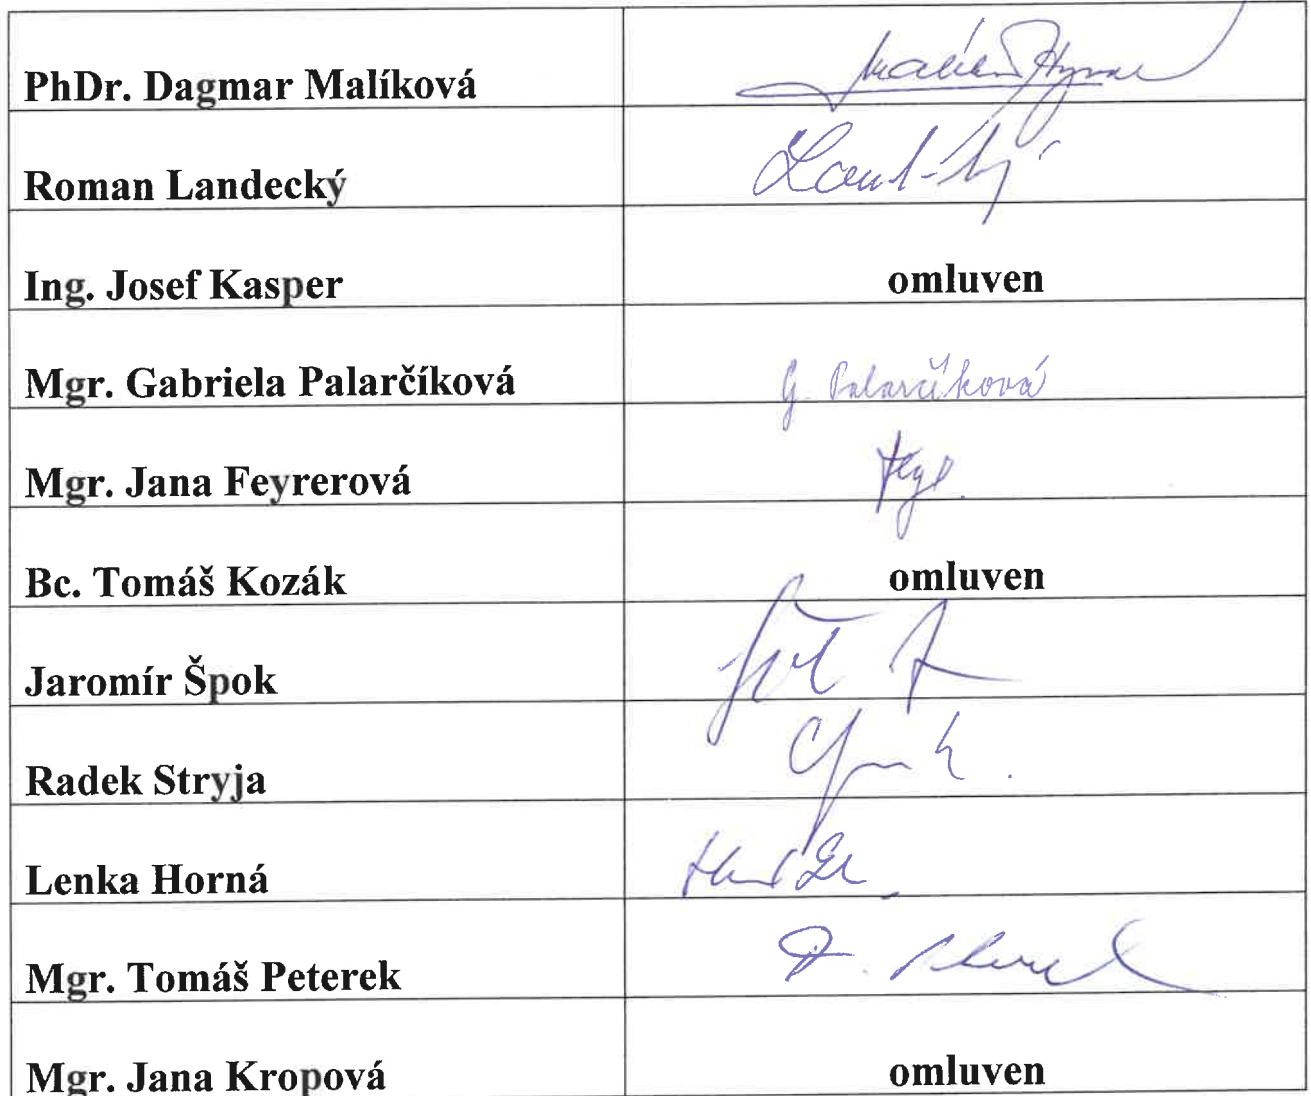 PhDr. Dagmar Malíková
Roman Landecký
Ing. Josef Kasper omluven
Mgr. Gabriela Palarčíková G. Palarčíková
Mgr. Jana Feyrerová
Bc. Tomáš Kozák omluven
Jaromír Špok
Radek Stryja
Lenka Horná
Mgr. Tomáš Peterek
Mgr. Jana Kropová omluven